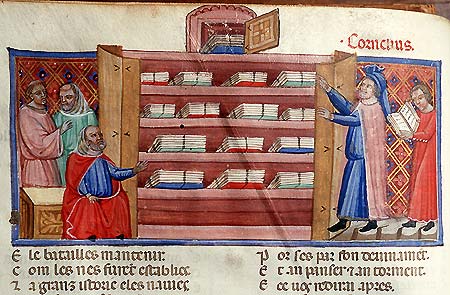 ·Cornelius·
E le batailles mantenir.
C om les nes furēt establies
a granz istoire eles navies
P or ses par son
E t an panser ⁊ an torment.
E ce uos redirai apres.